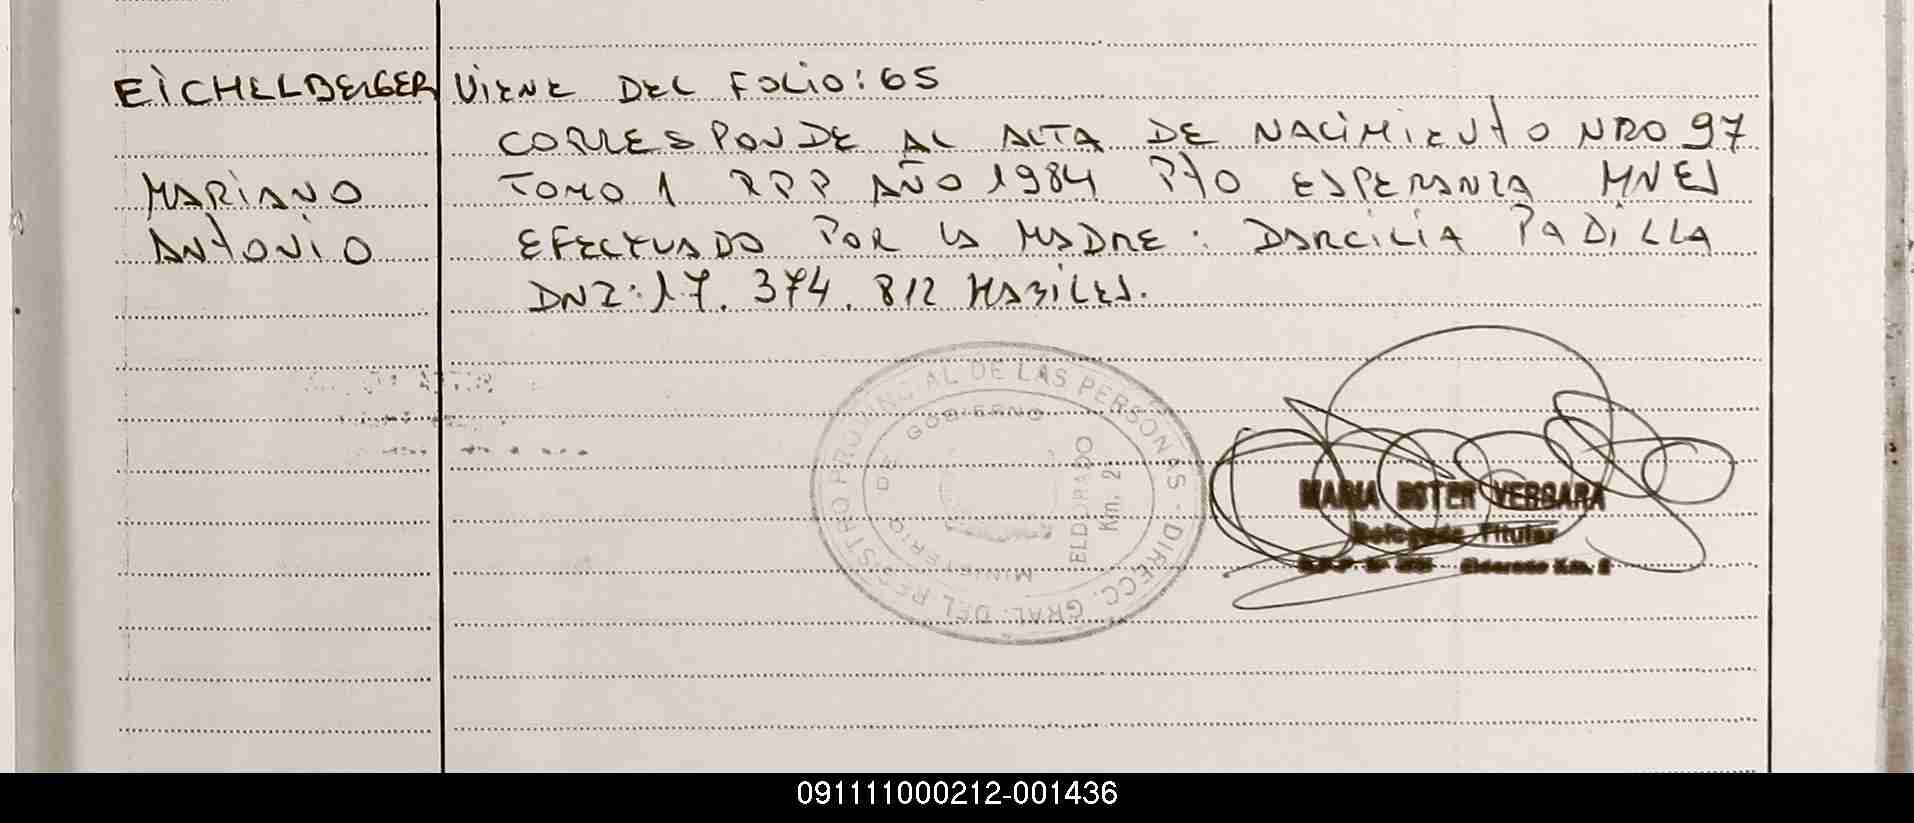 EICHELBERGER VIENE DEL FOLIO: 65
CORRESPONDE AL ACTA DE NACIMIENTO NRO 97
MARIANO TOMO 1 RPP AÑO 1984 PTO ESPERANZA MNES
ANTONIO EFECTUADO POR LA MADRE: DARCILIA PADILLA
DNI: 17.374.812
REGISTRO PROVINCIAL DE LAS PERSONAS - DIRECC. GRAL. DEL
MINISTERIO DE GOBIERNO
ELDORADO
Km. 2
MARIA ESTER VERGARA
Delegada Titular
Eldorado Km. 2
091111000212-001436